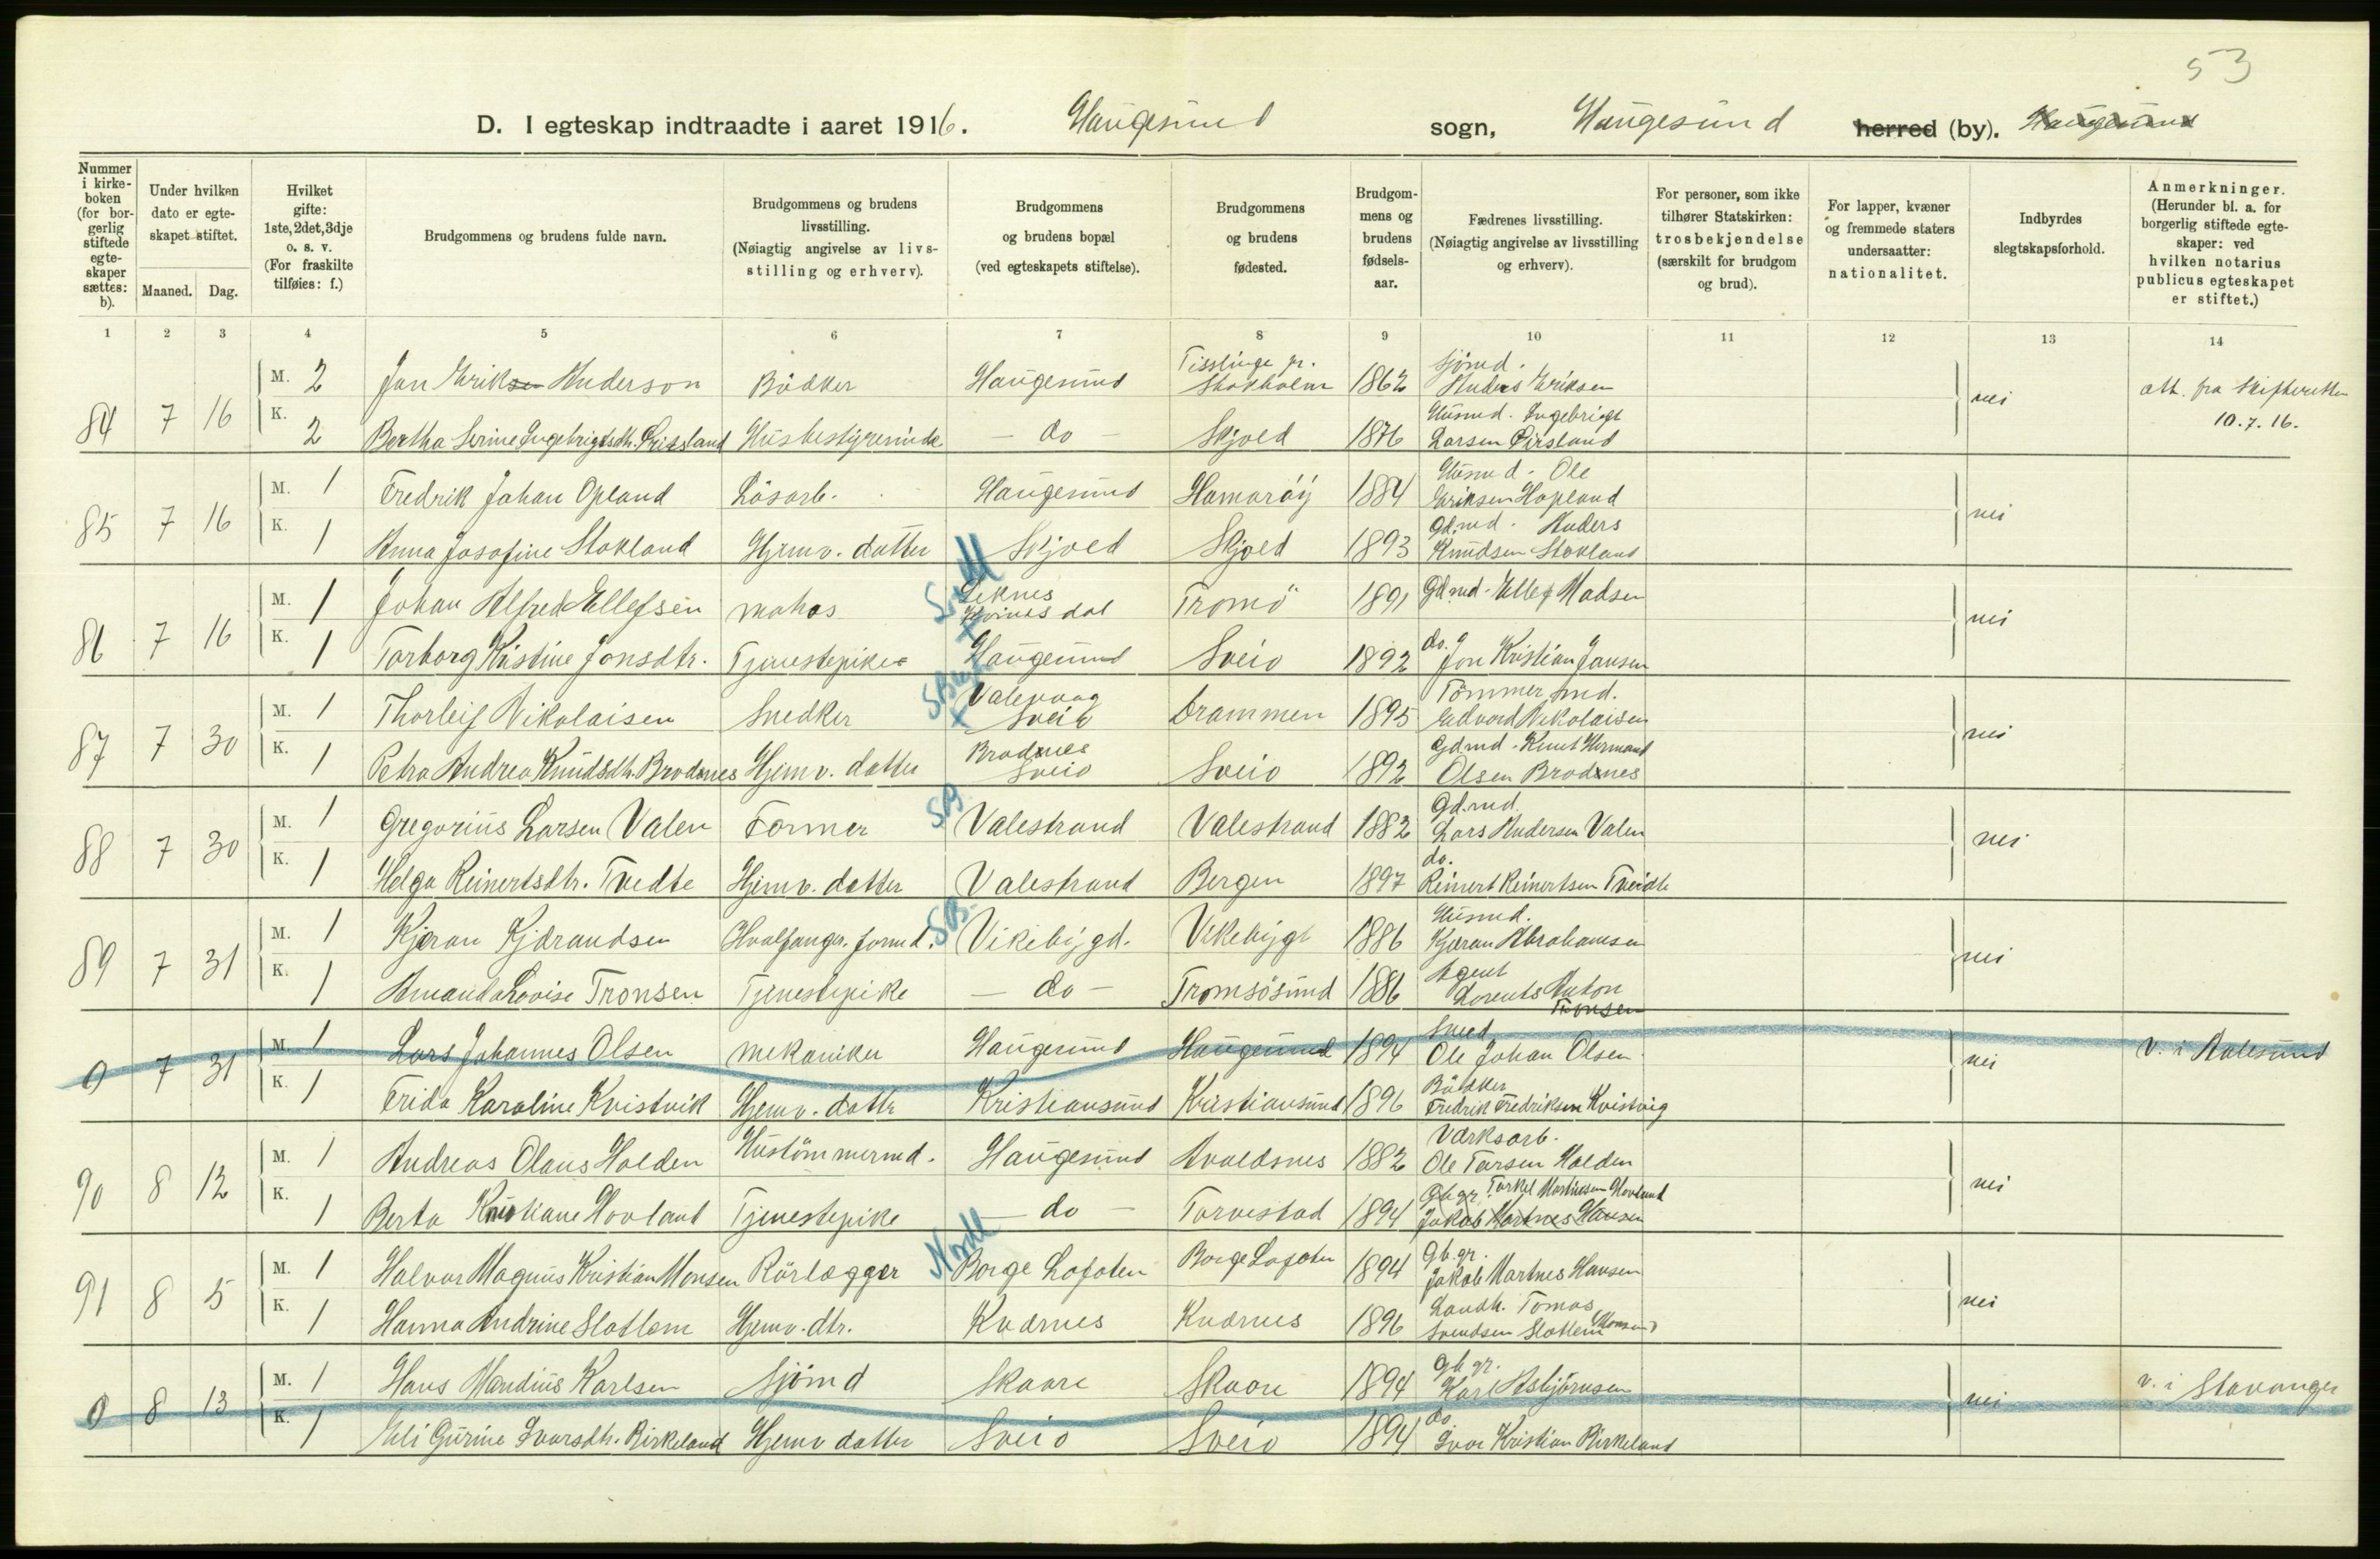 53
D. I egteskap indtraadte i aaret 1916. Haugesund sogn, Haugesund herred (by). Haugesund
Nummer i kirke-boken (for bor-gerlig stiftede egte-skaper sættes: b).
Under hvilken dato er egte-skapet stiftet.
Maaned. Dag.
Hvilket gifte: 1ste, 2det, 3dje o. s. v. (For fraskilte tilføies: f.)
Brudgommens og brudens fulde navn.
Brudgommens og brudens livsstilling. (Nøiagtig angivelse av livs-stilling og erhverv).
Brudgommens og brudens bopæl (ved egteskapets stiftelse).
Brudgommens og brudens fødested.
Brudgom-mens og brudens fødsels-aar.
Fædrenes livsstilling. (Nøiagtig angivelse av livsstilling og erhverv).
For personer, som ikke tilhører Statskirken: trosbekjendelse (særskilt for brudgom og brud).
For lapper, kvæner og fremmede staters undersaatter: nationalitet.
Indbyrdes slegtskapsforhold.
Anmerkninger. (Herunder bl. a. for borgerlig stiftede egte-skaper: ved hvilken notarius publicus egteskapet er stiftet.)
1 2 3 4 5 6 7 8 9 10 11 12 13 14
84 7 16 M. 2 Jan Eriksen Anderson Bödker Haugesund Tisslinge pr. Stokholm 1862 Sjömd. Anders Eriksen nei att. fra Skifteretten 10.7.16.
K. 2 Bertha Serine Ingebrigtsdtr. Husbestyrerinde – do – Skjold 1876 Husmd. Ingebrigt Larsen
85 7 16 M. 1 Fredrik Johan Opland Lösarb. Haugesund Hamaröy 1884 Husmd. Ole Eriksen Hopland nei
K. 1 Anna Josofine Stokland Hjemv. datter Skjold Skjold 1893 Gd.md. Anders Knudsen Stokland
86 7 16 M. 1 Johan Alfred Ellefsen Leknes Tromö 1891 Gdmd. Ellef Madsen nei
K. 1 Torborg Kristine Jonsdtr. Tjenestepike Haugesund Sveio 1892 do. Jon Kristian Jansen
87 7 30 M. 1 Thorleif Nikolaisen Snedker Valevaag Sveio Drammen 1895 Tömmermd. Edvard Nikolaisen nei
K. 1 Petra Andrea Knudsdtr. Brodnes Hjemv. datter Brodnes Sveio Sveio 1892 Gdmd. Knut Hermand Olsen Brodnes
88 7 30 M. 1 Gregorius Larsen Valen Former SB Valestrand Valestrand 1882 Gd.md. Lars Andersen Valen nei
K. 1 Helga Reinertsdtr. Tvedte Hjemv. datter Valestrand Bergen 1897 do. Reinert Reinertsen Tveidte
89 7 31 M. 1 Kjæran Kjærandsen Hvalfanger. formd. SB. Vikebygd. Vikebygd 1886 Husmd. Kjæran Abrahamsen nei
K. 1 Amanda Lovise Tronsen Tjenestepike – do – Tromsösund 1886 Agent Lorents Anton Tronsen
0 7 31 M. 1 Lars Johannes Olsen mekaniker Haugesund Haugesund 1894 Smed Ole Johan Olsen nei v. i Aalesund
K. 1 Frida Karoline Kvistvik Hjemv. dattr Kristiansund Kristiansund 1896 Bödker Fredrik Fredriksen Kvistvig
90 8 12 M. 1 Andreas Olaus Holden Hustömmermd. Haugesund Avaldsnes 1882 Værksarb. Ole Tarsen Holden nei
K. 1 Berta Kristiane Hovland Tjenestepike – do – Torvestad 1894 Gbgr. Torkel Martinsen Hovland Jakob Martnes Hansen
91 8 5 M. 1 Halvor Magnus Kristian Monsen Rörlægger Nordl Borge Lofoten Borge Lofoten 1894 Gb.gr. Jakob Martnes Hansen nei
K. 1 Hanna Andrine Slatlem Hjemv. dtr. Kvernes Kvernes 1896 Landh. Tomas Svendsen Slatlem
0 8 13 M. 1 Hans Mandius Karlsen Sjömd Skaare Skaare 1894 Gbgr. Karl Asbjörnsen nei v. i Stavanger
K. 1 Eli Gurine Ivarsdtr. Birkeland Hjemv datter Sveio Sveio 1894 do Ivar Kristian Birkeland